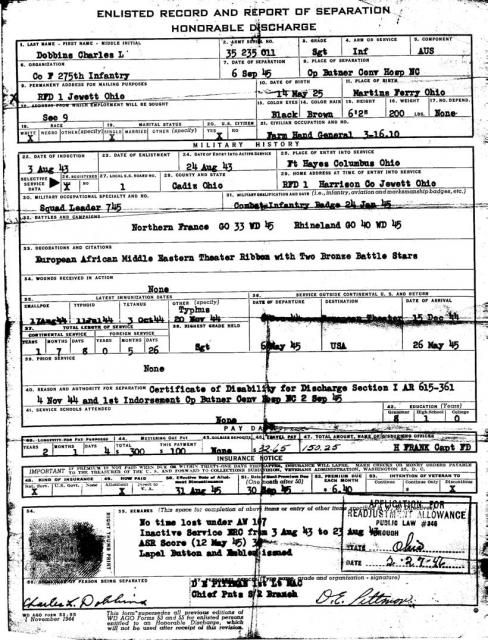 ENLISTED RECORD AND REPORT OF SEPARATION
HONORABLE DISCHARGE
1. LAST NAME - FIRST NAME - MIDDLE INITIAL
2. ARMY SERIAL NO.
3. GRADE
4. ARM OR SERVICE
5. COMPONENT
Dobbins Charles L
35 235 011
Sgt
Inf
AUS
6. ORGANIZATION
7. DATE OF SEPARATION
8. PLACE OF SEPARATION
Co F 275th Infantry
6 Sep 45
Op Butner Conv Hosp NC
9. PERMANENT ADDRESS FOR MAILING PURPOSES
10. DATE OF BIRTH
11. PLACE OF BIRTH
X RFD 1 Jewett Ohio
14 May 25
Martins Ferry Ohio
12. ADDRESS FROM WHICH EMPLOYMENT WILL BE SOUGHT
13. COLOR EYES
14. COLOR HAIR
15. HEIGHT
16. WEIGHT
17. NO. DEPEND.
See 9
Black
Brown
200 LBS.
None
18. RACE
19. MARITAL STATUS
20. U.S. CITIZEN
21. CIVILIAN OCCUPATION AND NO.
WHITE X NEGRO OTHER (specify) SINGLE X MARRIED OTHER (specify) YES X NO
Farm Hand General 3-16.10
MILITARY HISTORY
22. DATE OF INDUCTION
23. DATE OF ENLISTMENT
24. DATE OF ENTRY INTO ACTIVE SERVICE
25. PLACE OF ENTRY INTO SERVICE
3 Aug 43
24 Aug 43
Ft Hayes Columbus Ohio
SELECTIVE SERVICE DATA
26. REGISTERED
27. LOCAL S.S. BOARD NO.
28. COUNTY AND STATE
29. HOME ADDRESS AT TIME OF ENTRY INTO SERVICE
YES X NO
1
Cadiz Ohio
RFD 1 Harrison Co Jewett Ohio
30. MILITARY OCCUPATIONAL SPECIALTY AND NO.
31. MILITARY QUALIFICATION AND DATE (i.e., infantry, aviation and marksmanship badges, etc.)
Squad Leader 745
Combat Infantry Badge 24 Jan 45
32. BATTLES AND CAMPAIGNS
Northern France GO 33 WD 45 Rhineland GO 40 WD 45
33. DECORATIONS AND CITATIONS
European African Middle Eastern Theater Ribbon with Two Bronze Battle Stars
34. WOUNDS RECEIVED IN ACTION
None
35. LATEST IMMUNIZATION DATES
36. SERVICE OUTSIDE CONTINENTAL U.S. AND RETURN
SMALLPOX
TYPHOID
TETANUS
OTHER (specify)
DATE OF DEPARTURE
DESTINATION
DATE OF ARRIVAL
Typhus
3 Oct44
20 Nov 44
Theater
15 Dec 44
37. TOTAL LENGTH OF SERVICE
38. HIGHEST GRADE HELD
CONTINENTAL SERVICE
FOREIGN SERVICE
YEARS MONTHS DAYS YEARS MONTHS DAYS
1 7 8 0 5 26
Sgt
May 45
USA
26 May 45
39. PRIOR SERVICE
None
40. REASON AND AUTHORITY FOR SEPARATION
Certificate of Disability for Discharge Section I AR 615-361
4 Nov 44 and 1st Indorsement Op Butner Conv Hosp NC 2 Sep 45
41. SERVICE SCHOOLS ATTENDED
42. EDUCATION (Years)
Grammar High School College
None
0
PAY DATA
43. LONGEVITY FOR PAY PURPOSES
44. MUSTERING OUT PAY
45. SOLDIER DEPOSITS
46. TRAVEL PAY
47. TOTAL AMOUNT, NAME OF DISBURSING OFFICER
YEARS MONTHS DAYS TOTAL THIS PAYMENT
2 1 4 $ 300 $ 100
None
150.25
H FRANK Capt FD
INSURANCE NOTICE
IMPORTANT IF PREMIUM IS NOT PAID WHEN DUE OR WITHIN THIRTY-ONE DAYS THEREAFTER, INSURANCE WILL LAPSE. MAKE CHECKS OR MONEY ORDERS PAYABLE
TO THE TREASURER OF THE U. S. AND FORWARD TO COLLECTIONS SUBDIVISION, VETERANS ADMINISTRATION, WASHINGTON 25, D. C.
48. KIND OF INSURANCE
49. HOW PAID
50. Effective Date of Allotment Discontinuance
51. Date of Next Premium Due (One month after 50)
52. PREMIUM DUE EACH MONTH
53. INTENTION OF VETERAN TO
Nat. Serv. U.S. Govt. None Allotment Direct to V. A.
Continue Continue Only Discontinue
X
X
31 Aug 45
30 Sep 45
$ 6.40
X
54.
RIGHT THUMB PRINT
55. REMARKS (This space for completion of above items or entry of other items specified in W. D. Directives)
No time lost under AW 107
Inactive Service ERC from 3 Aug 43 to 23 Aug 43
ASR Score (12 May 45)
Lapel Button and issued
APPLICATION FOR
READJUSTMENT ALLOWANCE
THROUGH
PUBLIC LAW #346
STATE Ohio
DATE
56. SIGNATURE OF PERSON BEING SEPARATED
57. PERSONNEL OFFICER (Type name, grade and organization - signature)
Charles L. Dobbins
1st Lt
Chief Pnts S/R Branch
D. E. Pittman
WD AGO FORM 53-55
1 November 1944
This form supersedes all previous editions of
WD AGO Forms 53 and 55 for enlisted persons
entitled to an Honorable Discharge, which
will not be used after receipt of this revision.